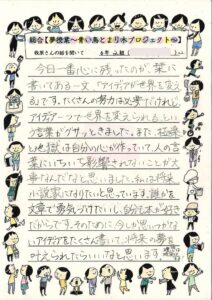 総合【夢授業〜青い鳥とより木プロジェクト〜】
感想
6年
今日一番心に残ったのが、葉に
書いてある一文、「アイデアが世界を変え
る」です。たくさんの努力は必要だけれど、
アイデア一つで世界を変えられるとい
う言葉がグサッときました。また、極楽
と地獄は自分の心が作っていて、人の言
葉にいちいち影響されないことが大
事なんだなと思いました。私は将来
小説家になりたいと思っています。誰かを
文章で勇気づけたいし、自分も本が好き
だからです。そのために、今しか思いつかな
いアイデアをたくさん書いて、将来の夢を
叶えられたらいいなと思います。